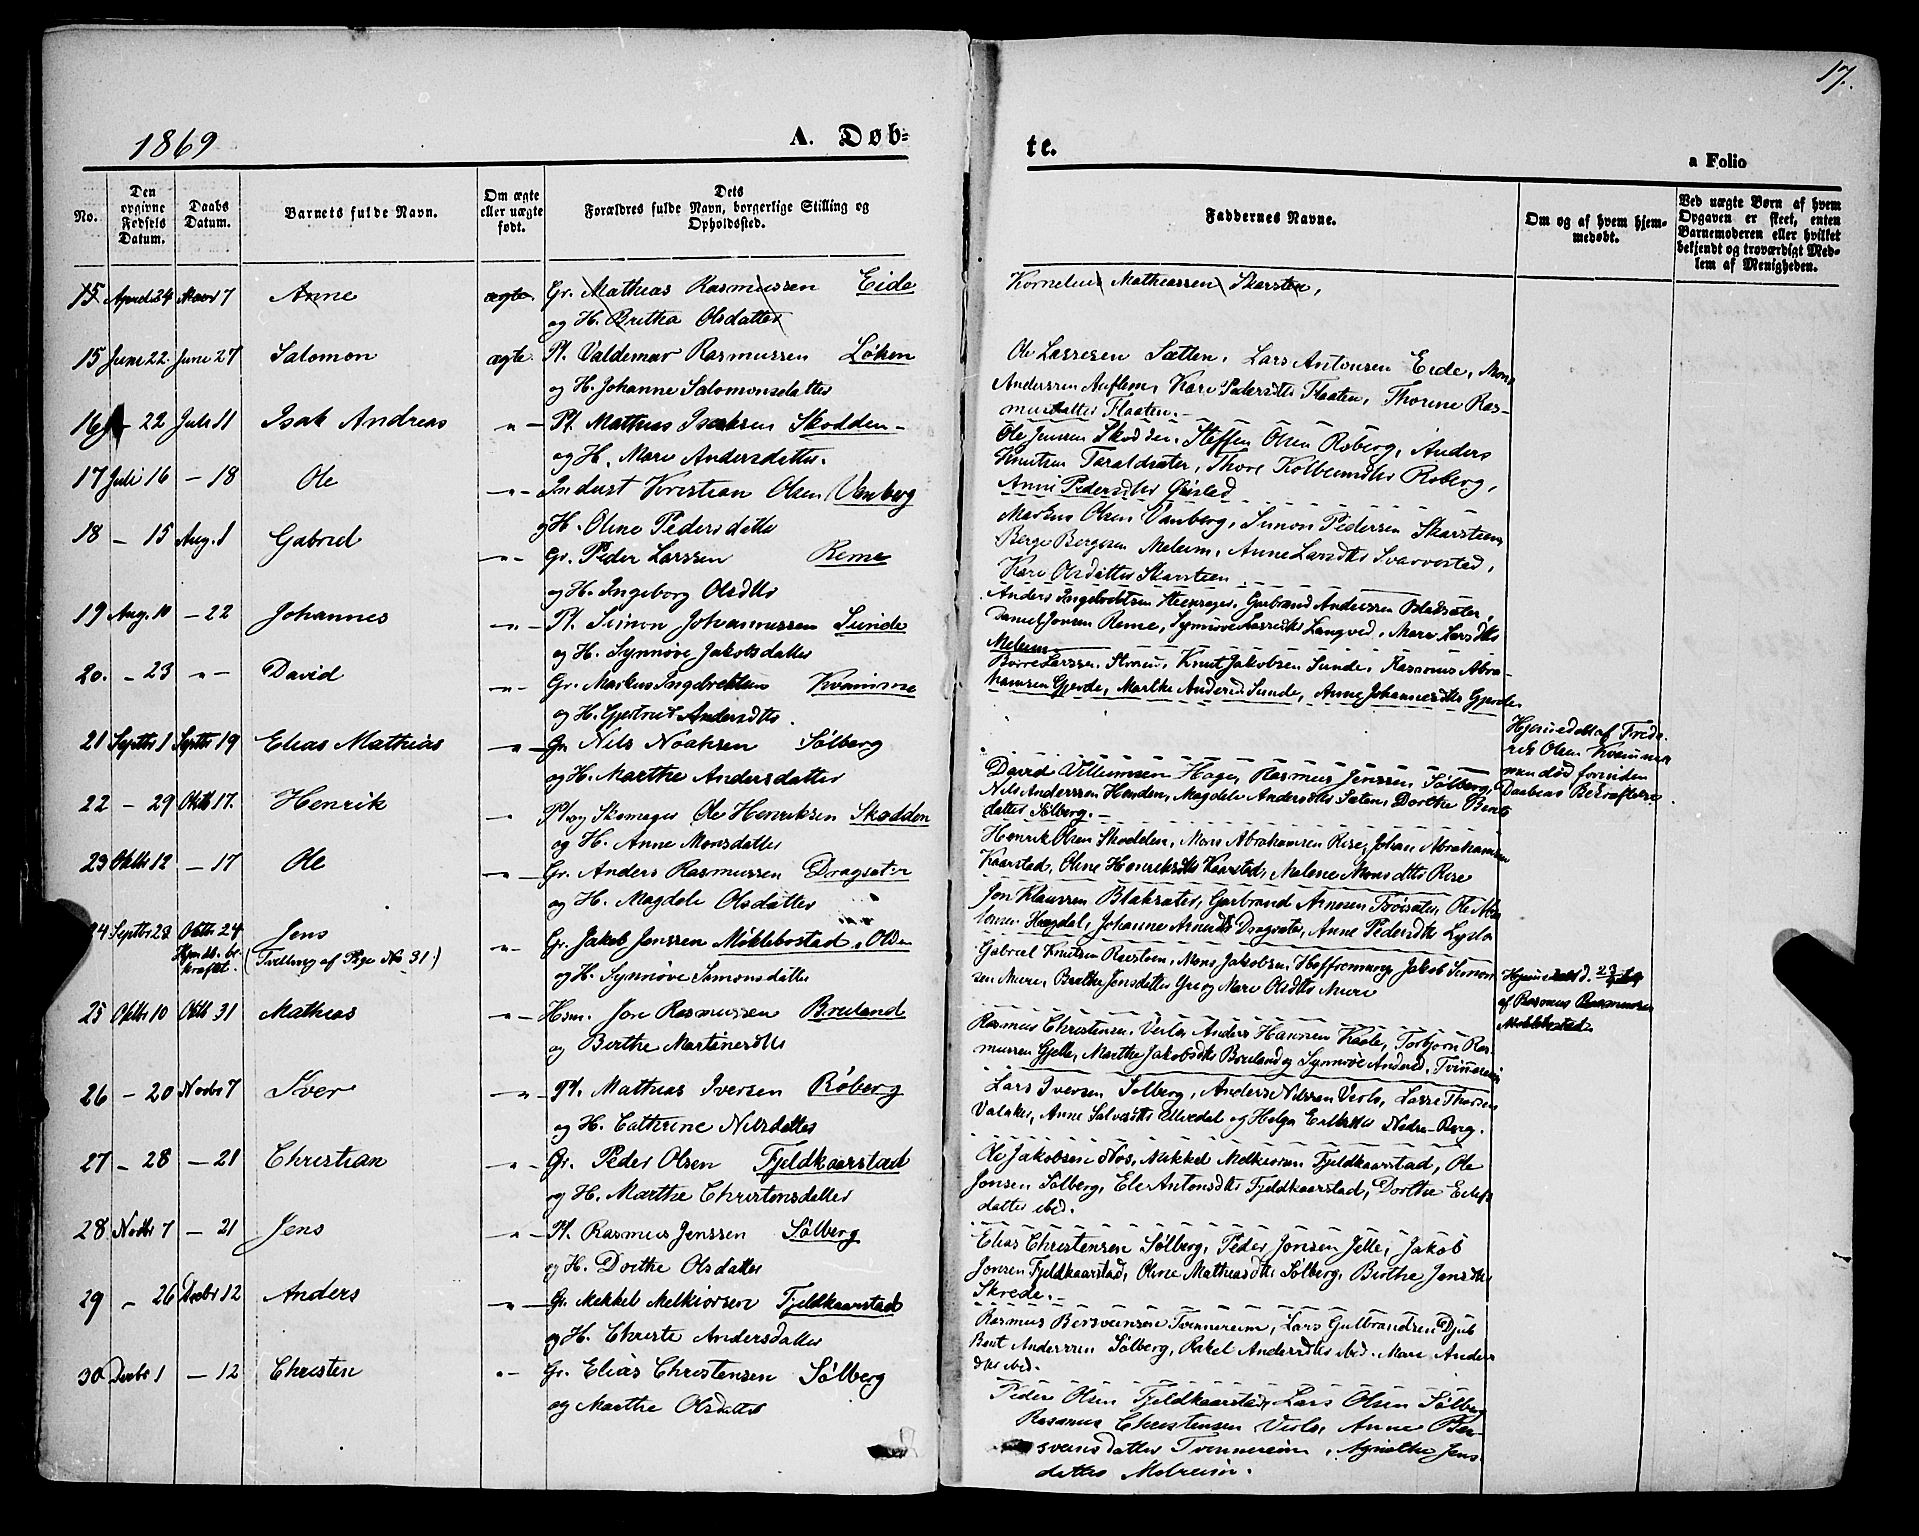 17.
1869
A. Døb-
te.
a Folio
No.
Den opgivne Fødsels Datum.
Daabs Datum.
Barnets fulde Navn.
Om ægte eller uægte født.
Dets Forældres fulde Navn, borgerlige Stilling og Opholdssted.
Faddernes Navne.
Om og af hvem hjemmedøbt.
Ved uægte Børn af hvem Opgaven er skeet, enten Barnemoderen eller hvilket bekjendt og troværdigt Medlem af Menigheden.
15 April 24 Mai 7 Anne ægte Gr. Mathias Rasmussen Eide
og H. Britha Olsdatter
Kornelius Mathiassen Skarsten,
15 Juni 22. Juni 27 Salomon ægte Pl. Valdemar Rasmussen Løken
og H. Johanne Salomonsdatter
Ole Lassesen Sætten, Lars Antonsen Eide, Mons
Anderssen Auflem, Kari Flaaten, Thorine Ras-
musdatter Flaaten.
16 - 22 Juli 11 Isak Andreas -"- Pl. Mathias Isaksen Skodden
og H. Mari Andersdatter.
Ole Jensen Skodden, Steffen Olsen Roberg, Anders
Knutsen Taraldsæter, Thore Kolbeinsdtr Roberg,
Anne Pedersdtr
17 Juli 16 - 18 Ole -"- Indust Kristian Olsen Vanberg
og H. Oline Pedersdatter
Markus Olsen Vanberg, Simon Pedersen Skarsteen
Berge Bergesen Meleim, Anne Larsdtr Svarvestad,
Kari Olsdatter Skarsteen
18 - 15 Aug. 1 Gabriel -"- Gr. Peder Larssen Reme
og H. Ingeborg Olsdtr
Anders Ingebretsen Garbrand Anderssen
Daniel Jonsen Reme, Synnøve Lassesdtr Langved, Mari Larsdtr
Meleim
19 Aug. 10 - 22 Johannes -"- Pl. Simon Johannessen Sunde
og H. Synnøve Jakobsdatter
Børre Larssen Knut Jakobsen Sunde, Rasmus Abra-
hamsen Gjerde, Marthe Andersd. Sunde, Anne Johannesdtr Gjerde
20. - 23 -"- David -"- Gr. Markus Ingebrektsen Kvamme
og H. Gjertrud Andersdtr.
21 Septbr 1 Septbr 19 Elias Mathias -"- Gr. Nils Noahsen Sølberg
og H. Marthe Andersdatter
David Villumsen Hage, Rasmus Jenssen Sølberg,
Nils Anderssen Henden, Magdeli Andersdtr Sæten, Dorthe Bents
datter Sølberg.
Hjemmedøbt af Frede-
rik Olsen Kvamme
men død forinden
Daabens Bekræftelse
22 - 29 Oktbr 17. Henrik -"- Pl. og Skomager Ole Henriksen Skodden
og H. Anne Monsdatter
Henrik Olsen Skodden, Mons Abrahamsen Rise, Johan Abrahamsen
Kaarstad, Oline Henriksdtr Kaarstad, Malene Monsdtr Rise
23 Oktbr 12 - 17 Ole -"- Gr. Anders Rasmussen Dragsæter
og H. Magdeli Olsdatter
Jon Klaussen Blaksæter, Garbrand Arnesen Ole
Hægdal, Johanne Arnesdtr Dragsæter, Anne Pedersdtr
24 Septbr 23 Oktbr 24 Jens
Hjmdb. be-
kræftet. (Tvilling af Pige No 31.)
-"- Gr. Jakob Jonssen Møklebostad, Olden
og H. Synnøve Simonsdatter
Gabriel Knutsen Mons Jakobsen Jakob Simon
sen Muri, Brithe Jonsdatter og Mari Olsdtr Muri
af Rasmus Rasmussen
Møklebostad
25 Oktbr 10 Oktbr 31 Mathias -"- Hsm. Jon Rasmussen Bruland
og Berthe Martinesdtr
Rasmus Christensen Verlo, Anders Hanssen Kaale, Torbjørn Ras-
mussen Gjelle, Marthe Jakobsdtr Bruland og Synnøve Andersd. Tvinnereim
26 - 20 Novbr 7 Iver -"- Pl. Mathias Iversen Røberg
og H. Cathrine Nilsdatter
Lars Iversen Sølberg, Anders Nilssen Verlo, Lasse Thorsen
Valaker, Anne og Helga Nedre-Berg.
27 - 28 - 21 Christian -"- Gr. Peder Olsen Fjeldkaarstad
og H. Marthe Christensdatter
Ole Jakobsen Nos, Mikkel Melkiorsen Fjeldkaarstad, Ole
Jonsen Sølberg, Eli Antonsdtr Fjeldkaarstad, Dorthe
datter ibid.
28 Novbr 7 - 21 Jens -"- Pl. Rasmus Jenssen Sølberg
og H. Dorthe Olsdatter
Elias Christensen Sølberg, Peder Jonsen Jelle, Jakob
Jonsen Fjeldkaarstad, Oline Mathiasdtr Sølberg, Birthe Jensdtr
Skrede.
29 - 26 Decbr 12 Anders -"- Gr. Mikkel Melkiorsen Fjeldkaarstad
og H. Christe Andersdatter
Rasmus Bersveinsen Tvinnereim, Lars Gulbrandsen Djub
Bent Anderssen Sølberg, Rakel Andersdtr ibid. Mari Anders
dtr ibid.
30 Decbr 1 - 12 Christen -"- Gr. Elias Christensen Sølberg
og Marthe Olsdatter
Peder Olsen Fjeldkaarstad, Lars Olsen Sølberg
Rasmus Christensen Verlo, Anne Ber-
sveinsdatter Tvinnereim, Agnethe Jens
datter Melreim.